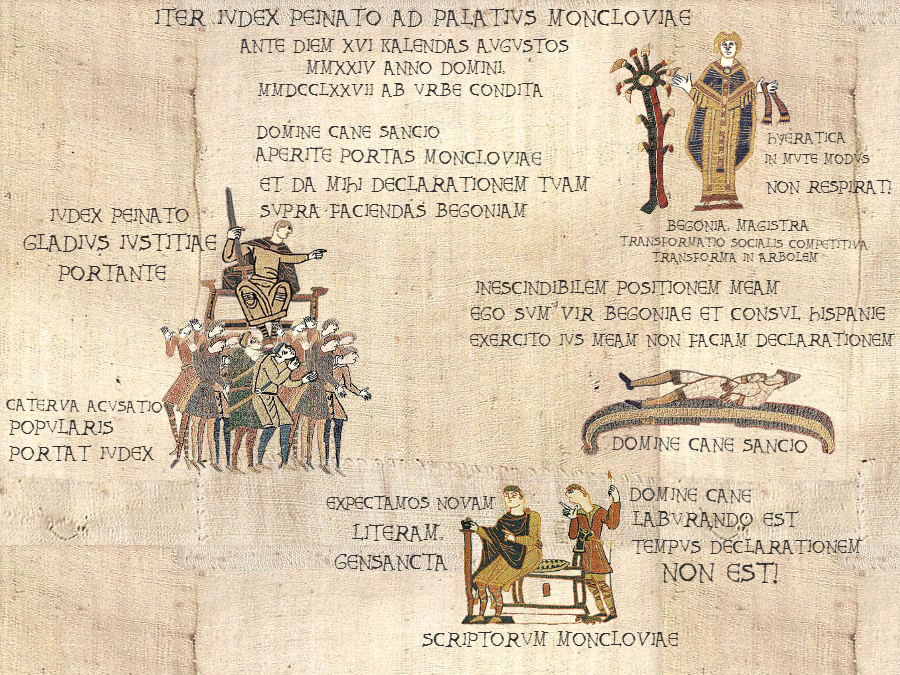 ITER IVDEX PEINATO AD PALATIVS MONCLOVIAE
ANTE DIEM XVI KALENDAS AVGVSTOS
MMXXIV ANNO DOMINI,
MMDCCLXXVII AB VRBE CONDITA
DOMINE CANE SANCIO
APERITE PORTAS MONCLOVIAE
ET DA MIHI DECLARATIONEM TVAM
SVPRA FACIENDAS BEGONIAM
HYERATICA
IN MVTE MODVS
NON RESPIRAT!
BEGONIA, MAGISTRA
TRANSFORMATIO SOCIALIS COMPETITIVA
TRANSFORMA IN ARBOLEM
IVDEX PEINATO
GLADIVS IVSTITIAE
PORTANTE
INESCINDIBILEM POSITIONEM MEAM
EGO SVM VIR BEGONIAE ET CONSVL HISPANIE
EXERCITO IVS MEAM NON FACIAM DECLARATIONEM
CATERVA ACVSATIO
POPVLARIS
PORTAT IVDEX
DOMINE CANE SANCIO
EXPECTAMOS NOVAM
LITERAM,
GENSANCTA
DOMINE CANE
LABVRANDO EST
TEMPVS DECLARATIONEM
NON EST!
SCRIPTORVM MONCLOVIAE